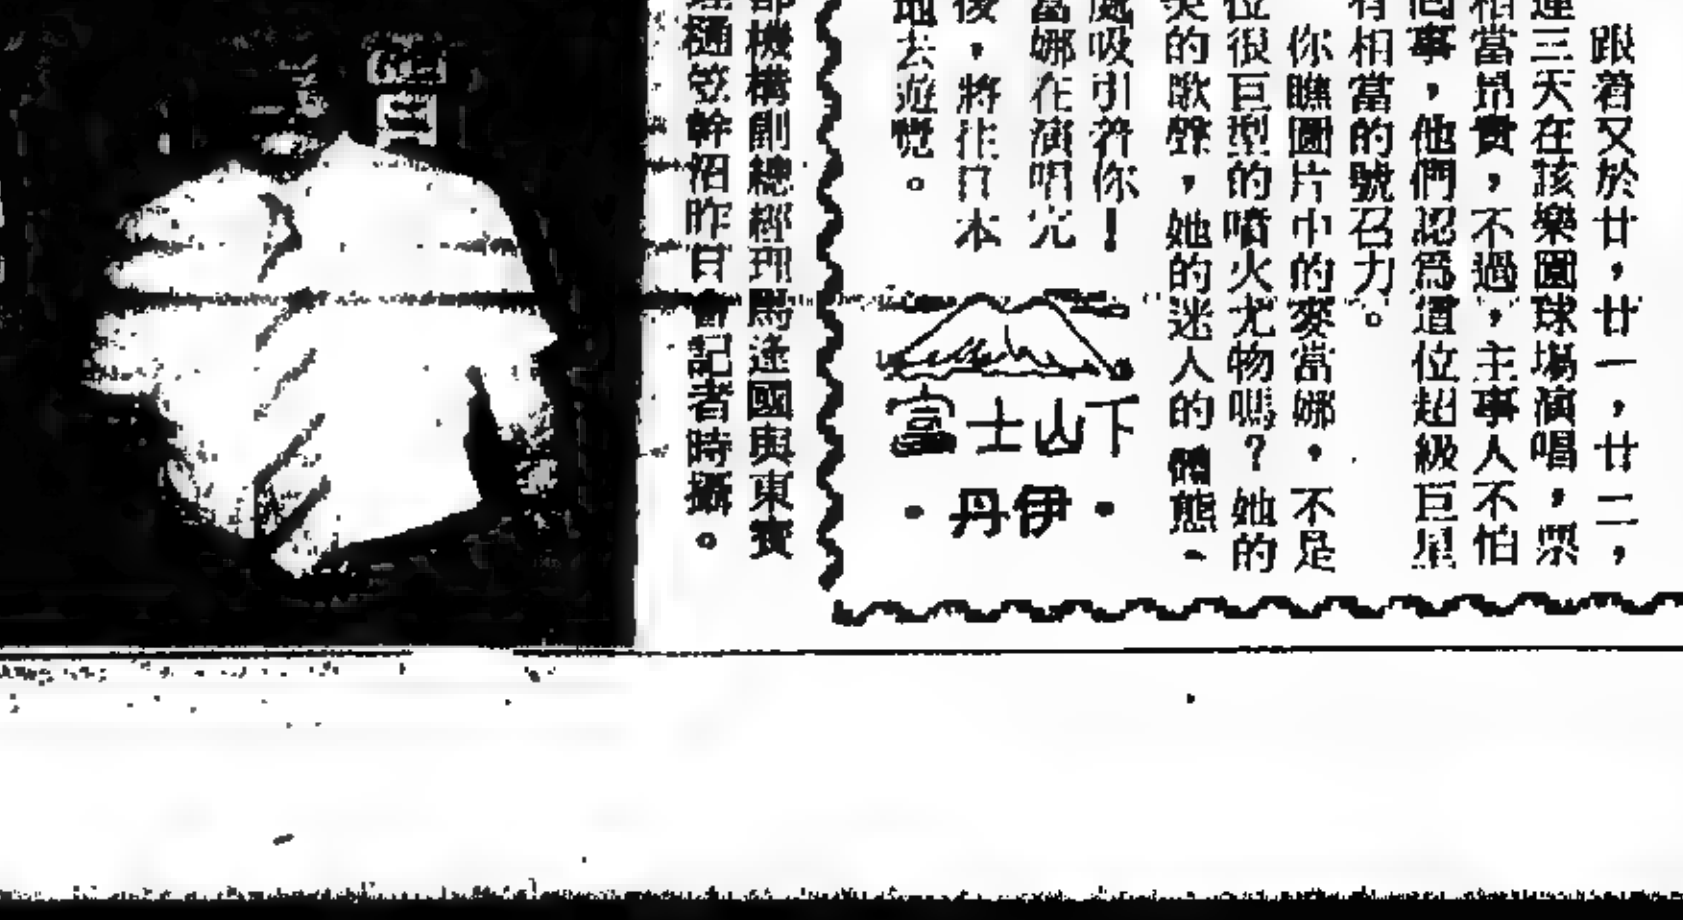 跟着又於廿，廿一，廿二，
連三天在該樂園球塲演唱，票
相當昂貴，不過，主事人不怕
同事，他們認爲這位超級巨星
有相當的號召力。
你瞧圖片中的麥當娜，不是
位很巨型的噴火尤物嗎？她的
美的歌聲，她的迷人的體態、
處吸引着你！
當娜在演唱完
後，將往日本
地去遊覽。
富士山下
·丹伊·
部機構副總經理馬逢國與東寶
昨日會記者時攝。